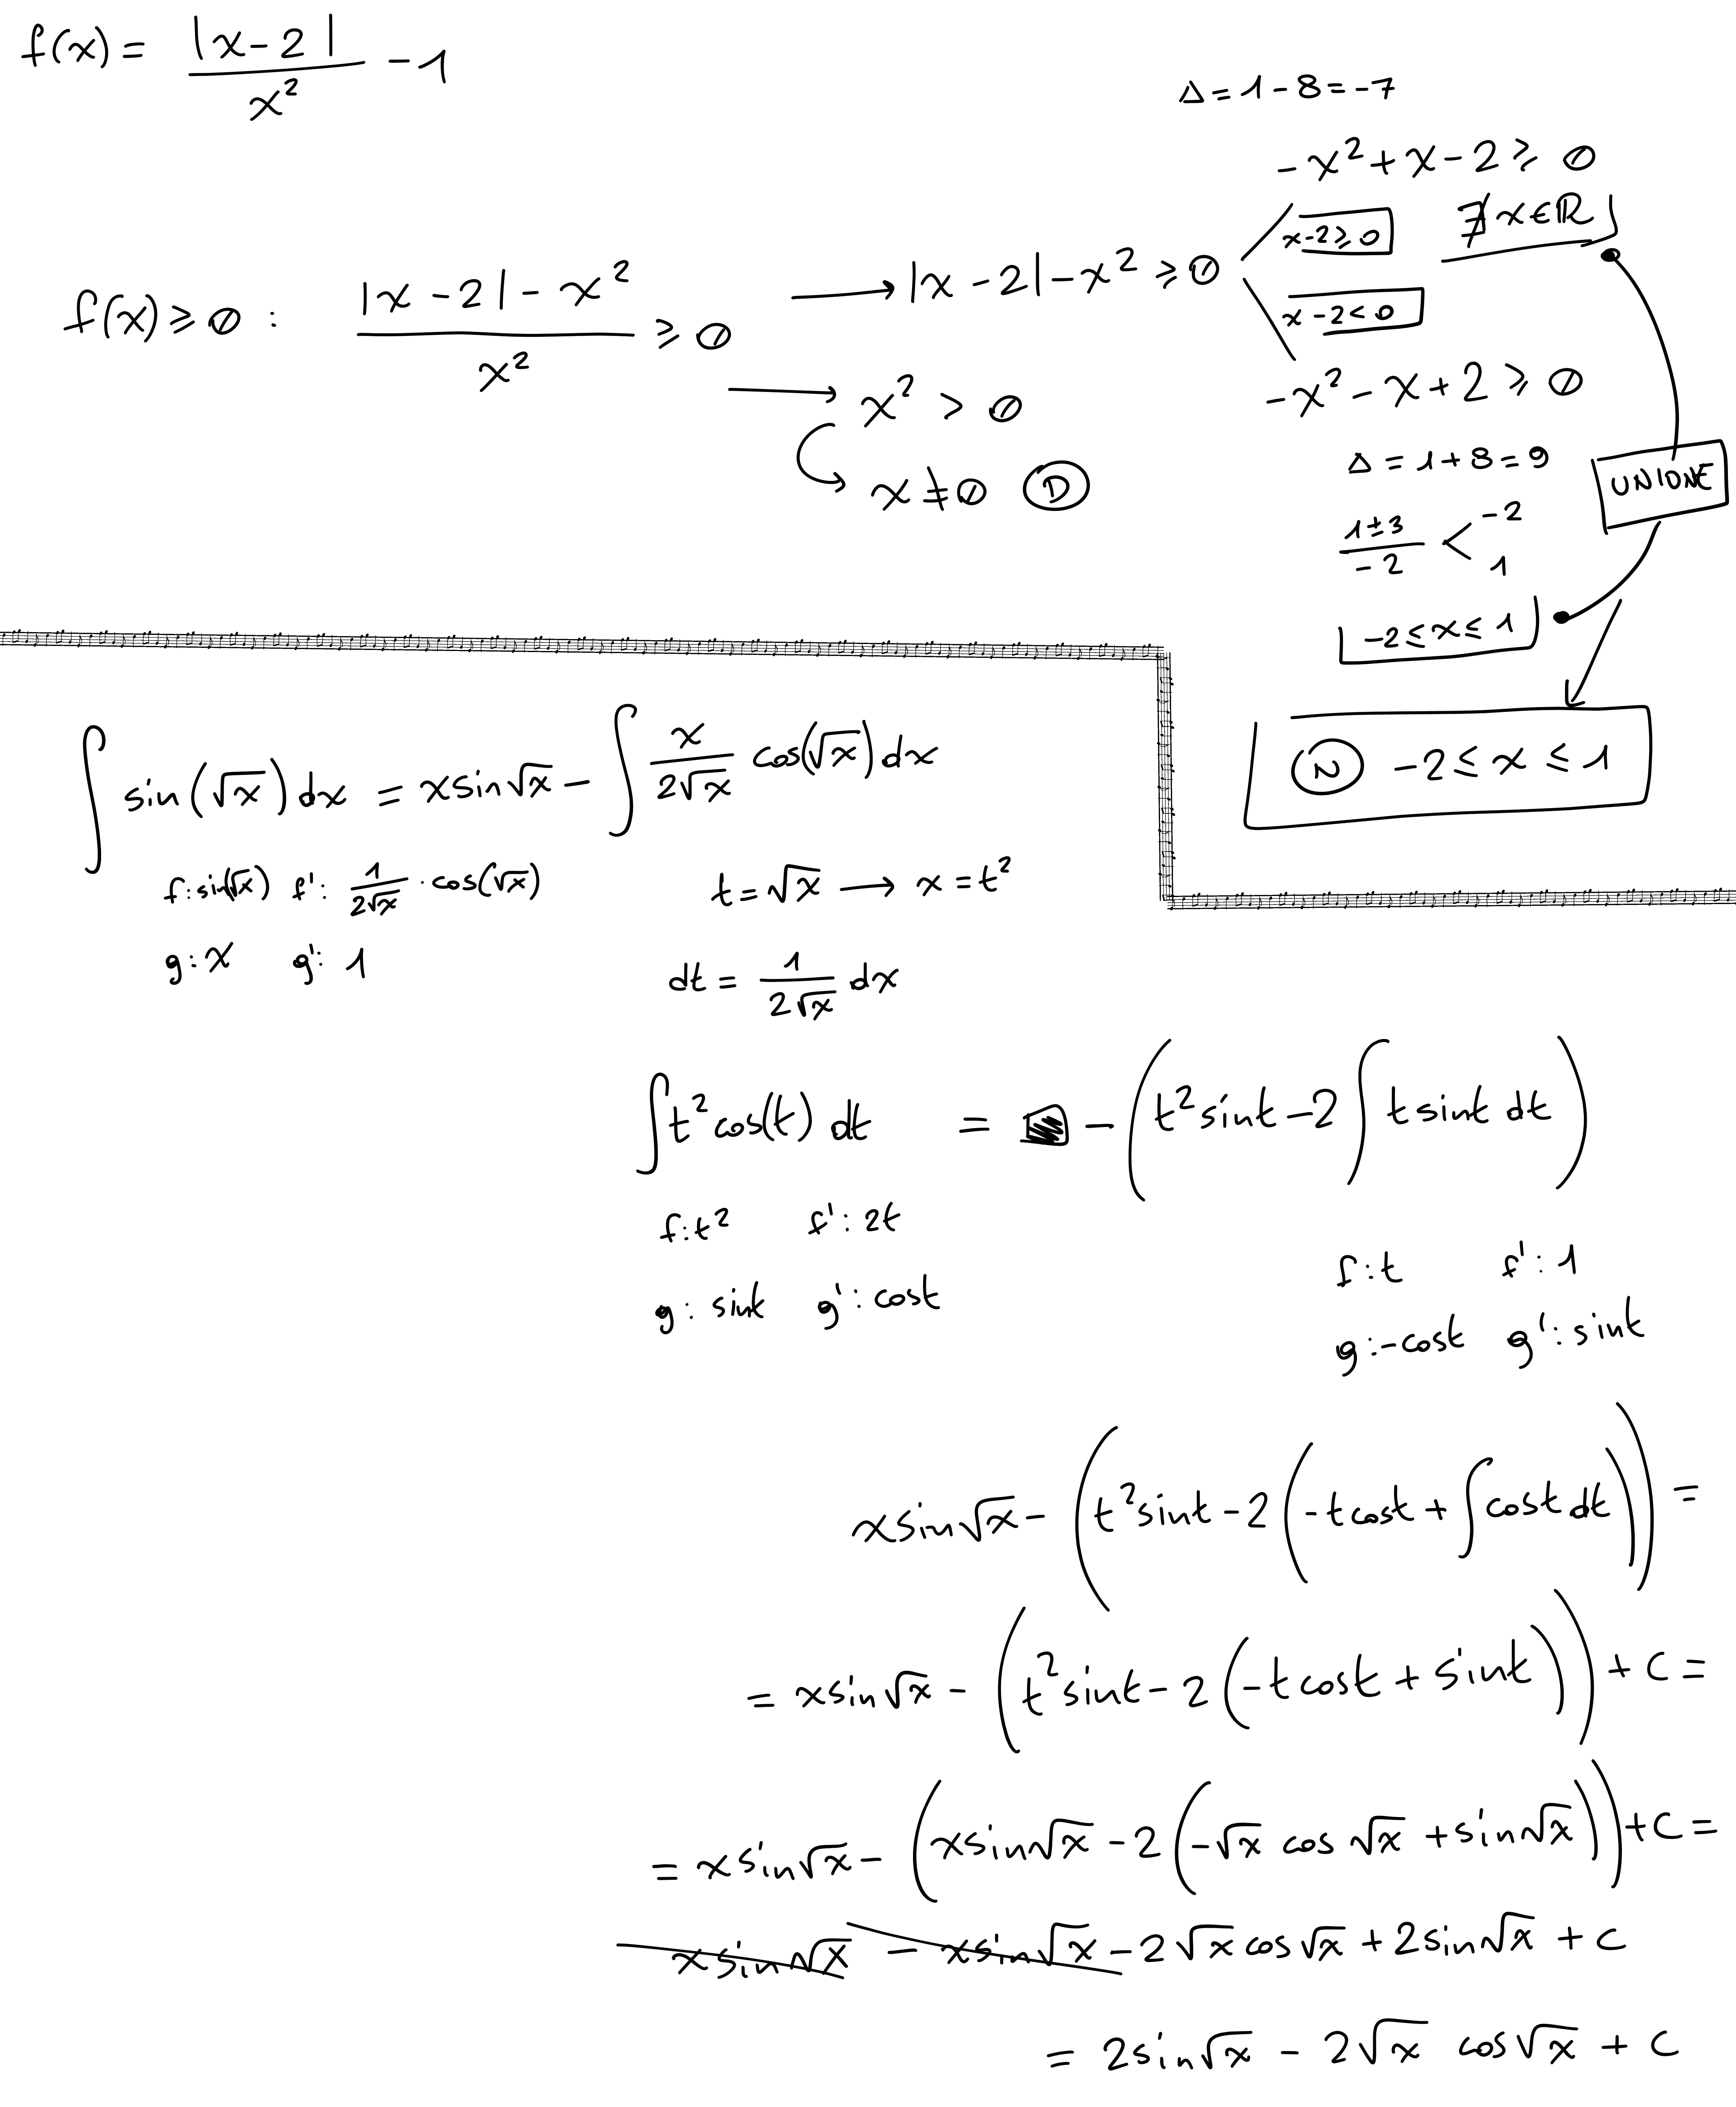 f(x) = |x-2| / x² - 1
Δ = 1 - 8 = -7
-x² + x - 2 ≥ 0
x-2 ≥ 0
∄ x ∈ ℝ
f(x) ≥ 0 : (|x-2| - x²) / x² ≥ 0
→ |x-2| - x² ≥ 0
x-2 < 0
-x² - x + 2 ≥ 0
→ x² > 0
Δ = 1 + 8 = 9
→ x ≠ 0 D
UNIONE
(1±3) / -2 < -2
1
-2 ≤ x ≤ 1
N -2 ≤ x ≤ 1
∫ sin(√x) dx = x sin√x - ∫ x / 2√x cos(√x) dx
f: sin(√x) f': 1 / 2√x · cos(√x)
g: x g': 1
t = √x → x = t²
dt = 1 / 2√x dx
∫ t² cos(t) dt = - (t² sint - 2 ∫ t sint dt)
f: t² f': 2t
g: sint g': cost
f: t f': 1
g: -cost g': sint
x sin√x - (t² sint - 2 (-t cost + ∫ cost dt)) =
= x sin√x - (t² sint - 2 (-t cost + sint)) + c =
= x sin√x - (x sin√x - 2 (-√x cos √x + sin√x)) + c =
x sin√x - x sin√x - 2√x cos√x + 2 sin√x + c
= 2 sin√x - 2√x cos√x + c